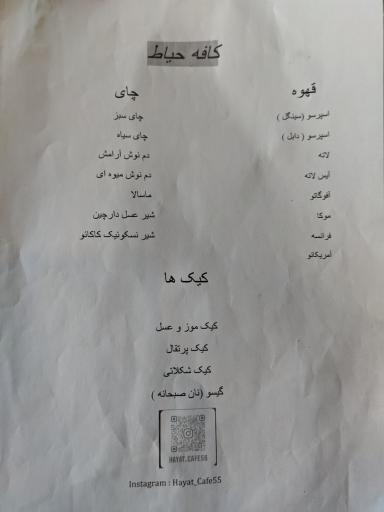 کافه حیاط
قهوه
اسپرسو (سینگل )
اسپرسو ( دابل )
لاته
آیس لاته
آفوگاتو
موکا
فرانسه
آمریکانو
چای
چای سبز
چای سیاه
دم نوش آرامش
دم نوش میوه ای
ماسالا
شیر عسل دارچین
شیر نسکوئیک کاکائو
کیک ها
کیک موز و عسل
کیک پرتقال
کیک شکلاتی
گیسو (نان صبحانه )
HAYAT.CAFE55
Instagram : Hayat_Cafe55